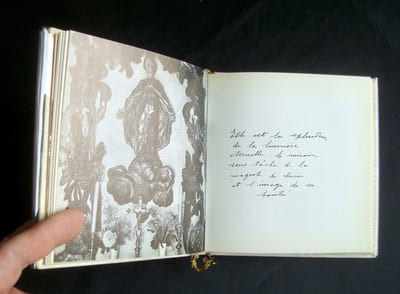 Elle est la splendeur
de la lumière
éternelle le miroir
sans tache de la
majesté de Dieu
et l'image de sa
bonté